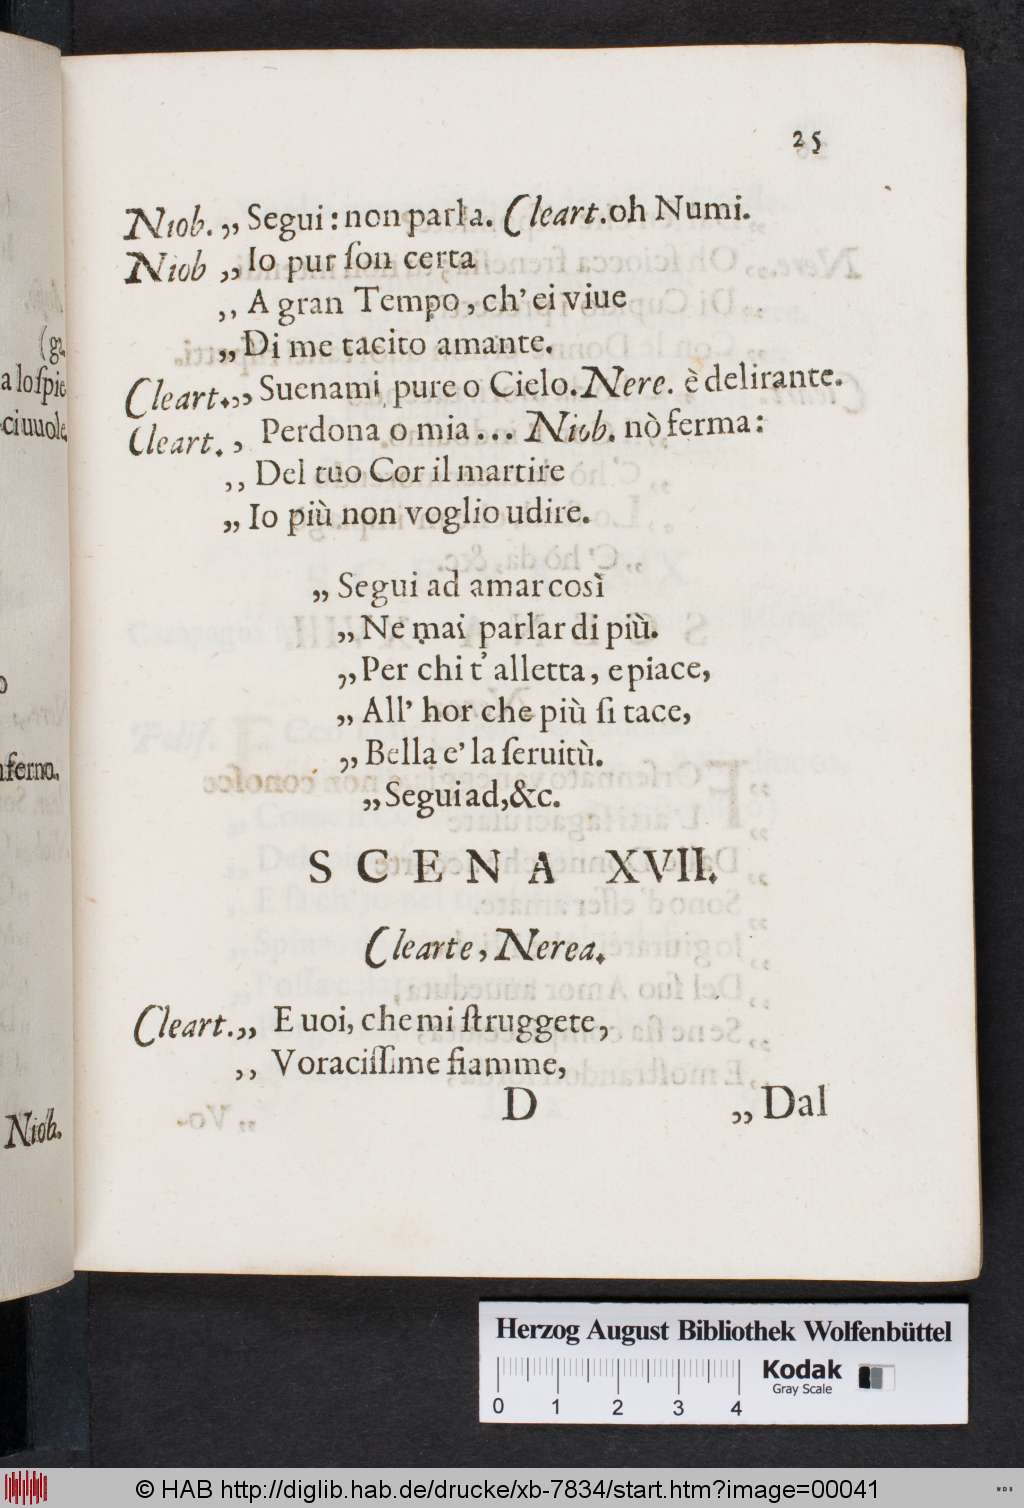 25
Niob. ,, Segui : non parla. Cleart. oh Numi.
Niob ,, Io pur ſon certa
,, A gran Tempo, ch' ei viue
,, Di me tacito amante.
Cleart. ,, Suenami pure o Cielo. Nere. è delirante.
Cleart. , Perdona o mia ... Niob. nò ferma :
,, Del tuo Cor il martire
,, Io più non voglio udire.
,, Segui ad amar così
,, Ne mai parlar di più.
,, Per chi t' alletta, e piace,
,, All' hor che più ſi tace,
,, Bella e' la ſeruitù.
,, Segui ad, &c.
SCENA XVII.
Clearte, Nerea.
Cleart. ,, E uoi, che mi ſtruggete,
,, Voraciſſime fiamme,
D ,, Dal
(g2
a lo ſpie
ci uuole
nferno.
Niob.
Herzog August Bibliothek Wolfenbüttel
Kodak
Gray Scale
0 1 2 3 4
© HAB http://diglib.hab.de/drucke/xb-7834/start.htm?image=00041